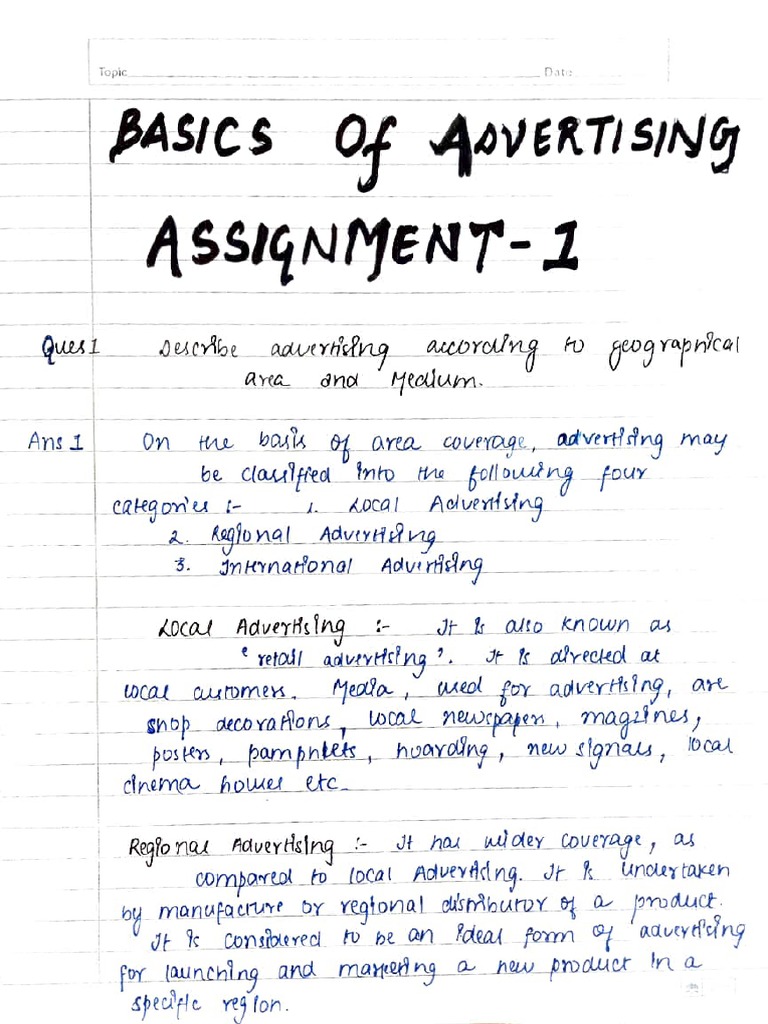 Topic Date
BASICS Of ADVERTISING
ASSIGNMENT-1
Ques 1 Describe advertising according to geographical
area and Medium.
Ans 1 On the basis of area coverage, advertising may
be classified into the following four
categories :- 1. Local Advertising
2. Regional Advertising
3. International Advertising
Local Advertising :- It is also known as
'retail advertising'. It is directed at
local customers. Media, used for advertising, are
shop decorations, local newspapers, magzines,
posters, pamphlets, hoarding, new signals, local
cinema houses etc.
Regional Advertising :- It has wider coverage, as
compared to local Advertising. It is undertaken
by manufacture or regional distributor of a product.
It is considered to be an ideal form of advertising
for launching and marketing a new product in a
specific region.